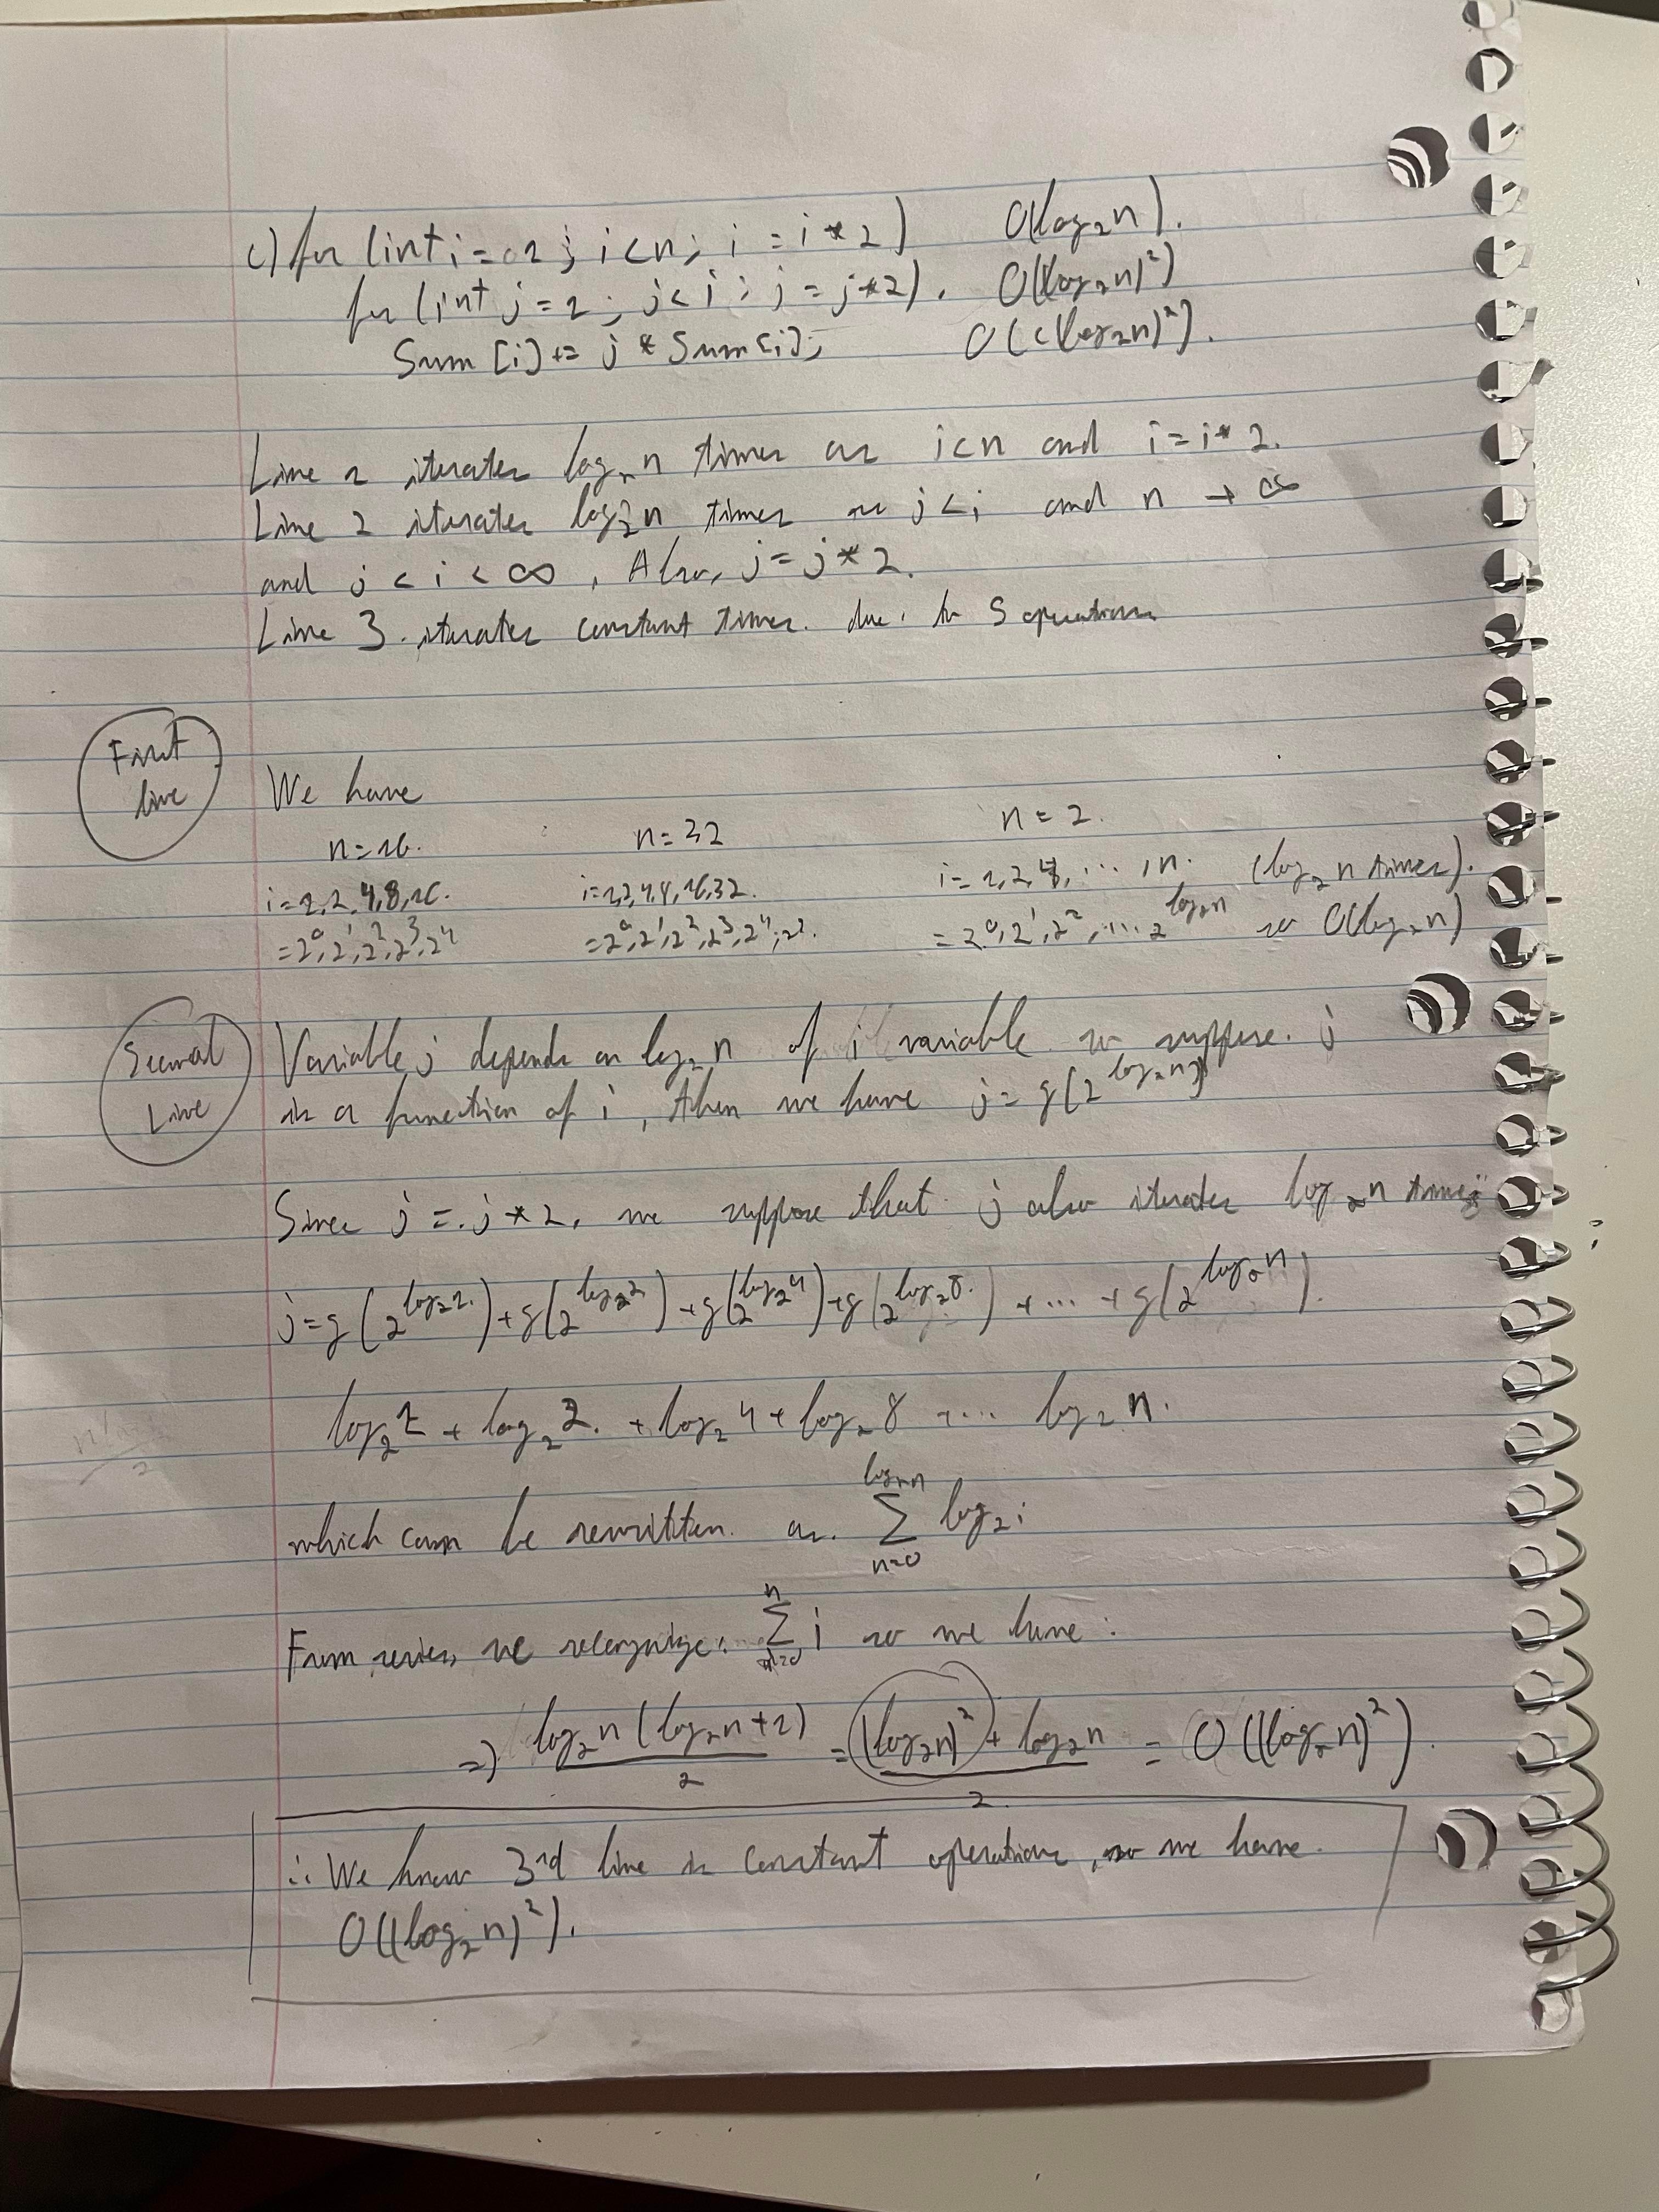 c) for (int i = 1; i < n; i = i * 2) O(log₂n).
for (int j = 1; j < i; j = j * 2). O((log₂n)²)
Sum[i] += j * Sum[i]; O(c(log₂n)²).
Line 1 iterates log₂n times as i < n and i = i * 2.
Line 2 iterates log₂²n times as j < i and n → ∞
and j < i < ∞, Also, j = j * 2.
Line 3 iterates constant times. due to 5 operations
First line
We have
n = 16. n = 32 n = 2.
i = 1, 2, 4, 8, 16. i = 1, 2, 4, 8, 16, 32. i = 1, 2, 4, ..., n. (log₂n times).
= 2⁰, 2¹, 2², 2³, 2⁴ = 2⁰, 2¹, 2², 2³, 2⁴, 2⁵. = 2⁰, 2¹, 2², ... 2^(log₂n) so O(log₂n)
Second Line
Variable j depends on log₂n of i variable so suppose. j
is a function of i, then we have j = g(2^(log₂n))
Since j = j * 2, we suppose that j also iterates log₂n times
j = g(2^(log₂1)) + g(2^(log₂2)) + g(2^(log₂4)) + g(2^(log₂8)) + ... + g(2^(log₂n)).
log₂1 + log₂2. + log₂4 + log₂8 + ... log₂n.
which can be rewritten as. Σ_(n=0)^(log₂n) log₂i
From series, we recognize: Σ_(n=0)^n i so we have:
=> log₂n(log₂n+1)/2 = ((log₂n)² + log₂n)/2 = O((log₂n)²).
∴ We know 3rd line is constant operations, so we have.
O((log₂n)²).